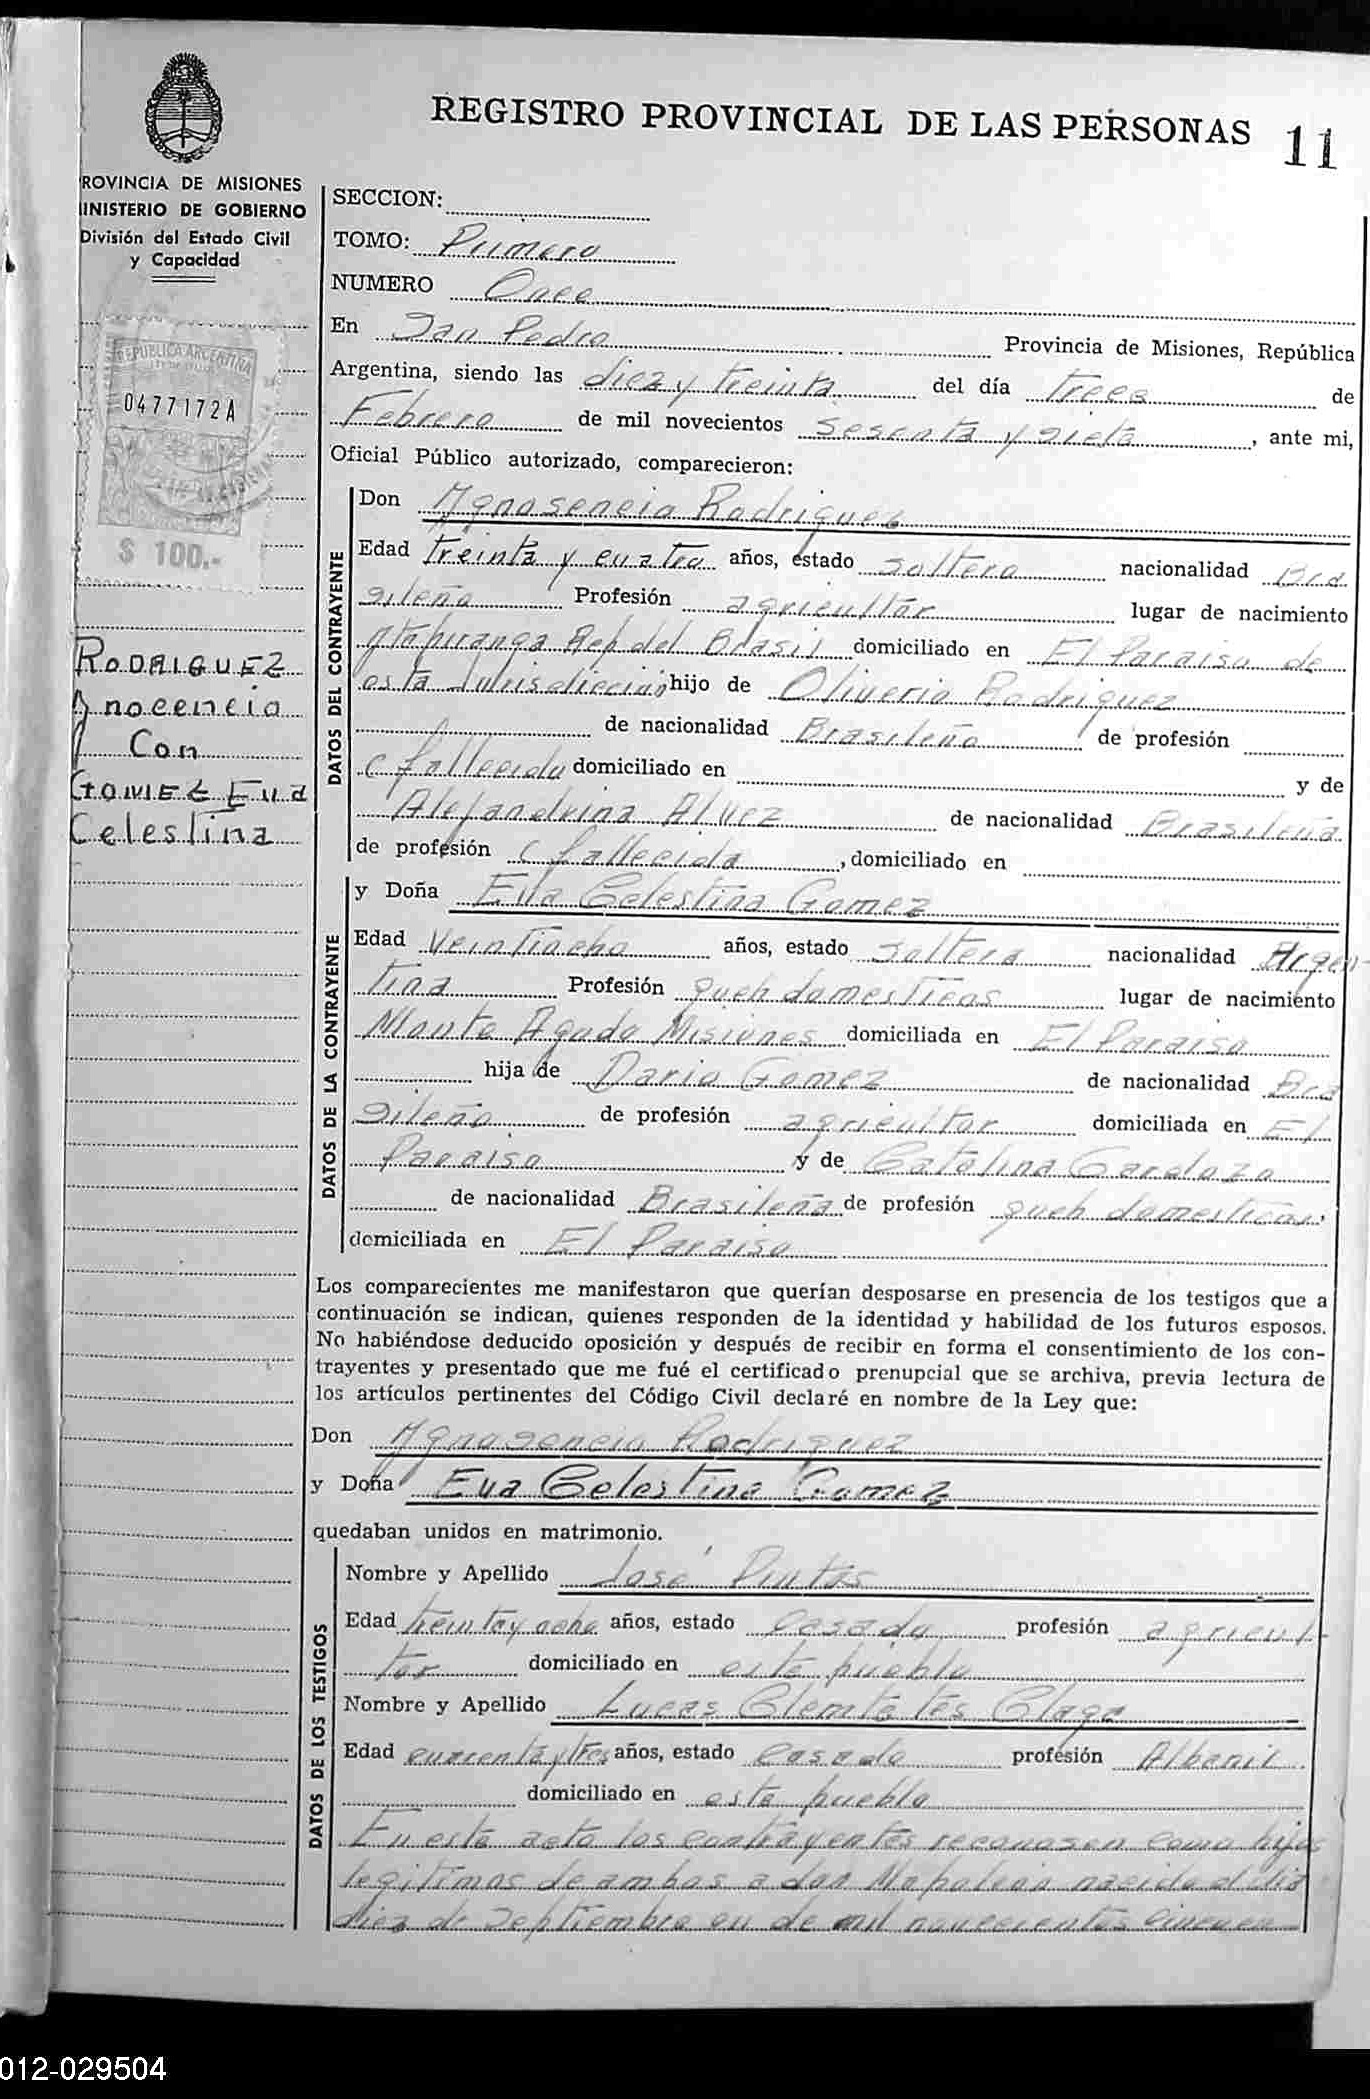 REGISTRO PROVINCIAL DE LAS PERSONAS 11
ROVINCIA DE MISIONES
INISTERIO DE GOBIERNO
División del Estado Civil
y Capacidad
REPUBLICA ARGENTINA
0477172A
$ 100.-
RODRIGUEZ
Ynocencio
Con
GOMEZ Eva
Celestina
SECCION:
TOMO: Primero
NUMERO Once
En San Pedro Provincia de Misiones, República
Argentina, siendo las diez y treinta del día trece de
Febrero de mil novecientos sesenta y siete, ante mi,
Oficial Público autorizado, comparecieron:
DATOS DEL CONTRAYENTE
Don Ygnosencio Rodriguez
Edad treinta y cuatro años, estado soltero nacionalidad Bra
sileño Profesión agricultor lugar de nacimiento
Ytapiranga Rep del Brasil domiciliado en El Paraiso de
esta Jurisdiccion hijo de Oliverio Rodriguez
de nacionalidad Brasileño de profesión
( fallecido domiciliado en y de
Alejandrina Alvez de nacionalidad Brasileña
de profesión ( fallecida, domiciliado en
DATOS DE LA CONTRAYENTE
y Doña Eva Celestina Gomez
Edad Veintiocho años, estado soltera nacionalidad Argen-
tina Profesión queh domesticos lugar de nacimiento
Monte Agudo Misiones domiciliada en El Paraiso
hija de Dario Gomez de nacionalidad Bra
sileño de profesión agricultor domiciliada en El
Paraiso y de Catalina Cardozo
de nacionalidad Brasileña de profesión queh domesticos,
domiciliada en El Paraiso
Los comparecientes me manifestaron que querían desposarse en presencia de los testigos que a
continuación se indican, quienes responden de la identidad y habilidad de los futuros esposos.
No habiéndose deducido oposición y después de recibir en forma el consentimiento de los con-
trayentes y presentado que me fué el certificado prenupcial que se archiva, previa lectura de
los artículos pertinentes del Código Civil declaré en nombre de la Ley que:
Don Ygnosencio Rodriguez
y Doña Eva Celestina Gomez
quedaban unidos en matrimonio.
DATOS DE LOS TESTIGOS
Nombre y Apellido José Pintos
Edad treinta y ocho años, estado casado profesión agricul-
tor domiciliado en este pueblo
Nombre y Apellido Lucas
Edad cuarenta y tres años, estado Casado profesión Albanil
domiciliado en este pueblo
En este acto los contrayentes reconosen como hijos
legitimos de ambos a don Napoleon nacido el dia
diez de Septiembre en de mil novecientos cincuen
012-029504